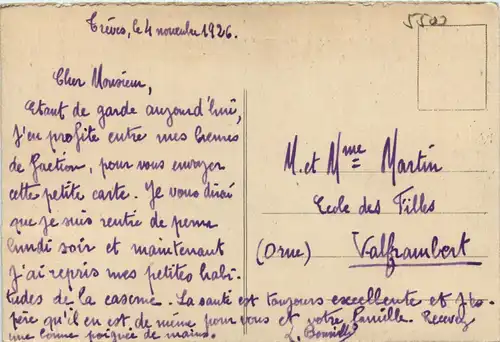 Trèves, le 4 novembre 1926.
5500
Cher Monsieur,
Etant de garde aujourd'hui,
j'en profite entre mes heures
de faction, pour vous envoyer
cette petite carte. Je vous dirai
que je suis rentré de perm
lundi soir et maintenant
j'ai repris mes petites habi-
tudes de la caserne. La santé est toujours excellente et j'es-
père qu'il en est de même pour vous et votre famille. Recevez
une bonne poignée de mains.
M. et Mme Martin
Ecole des Filles
Valframbert
(Orne)